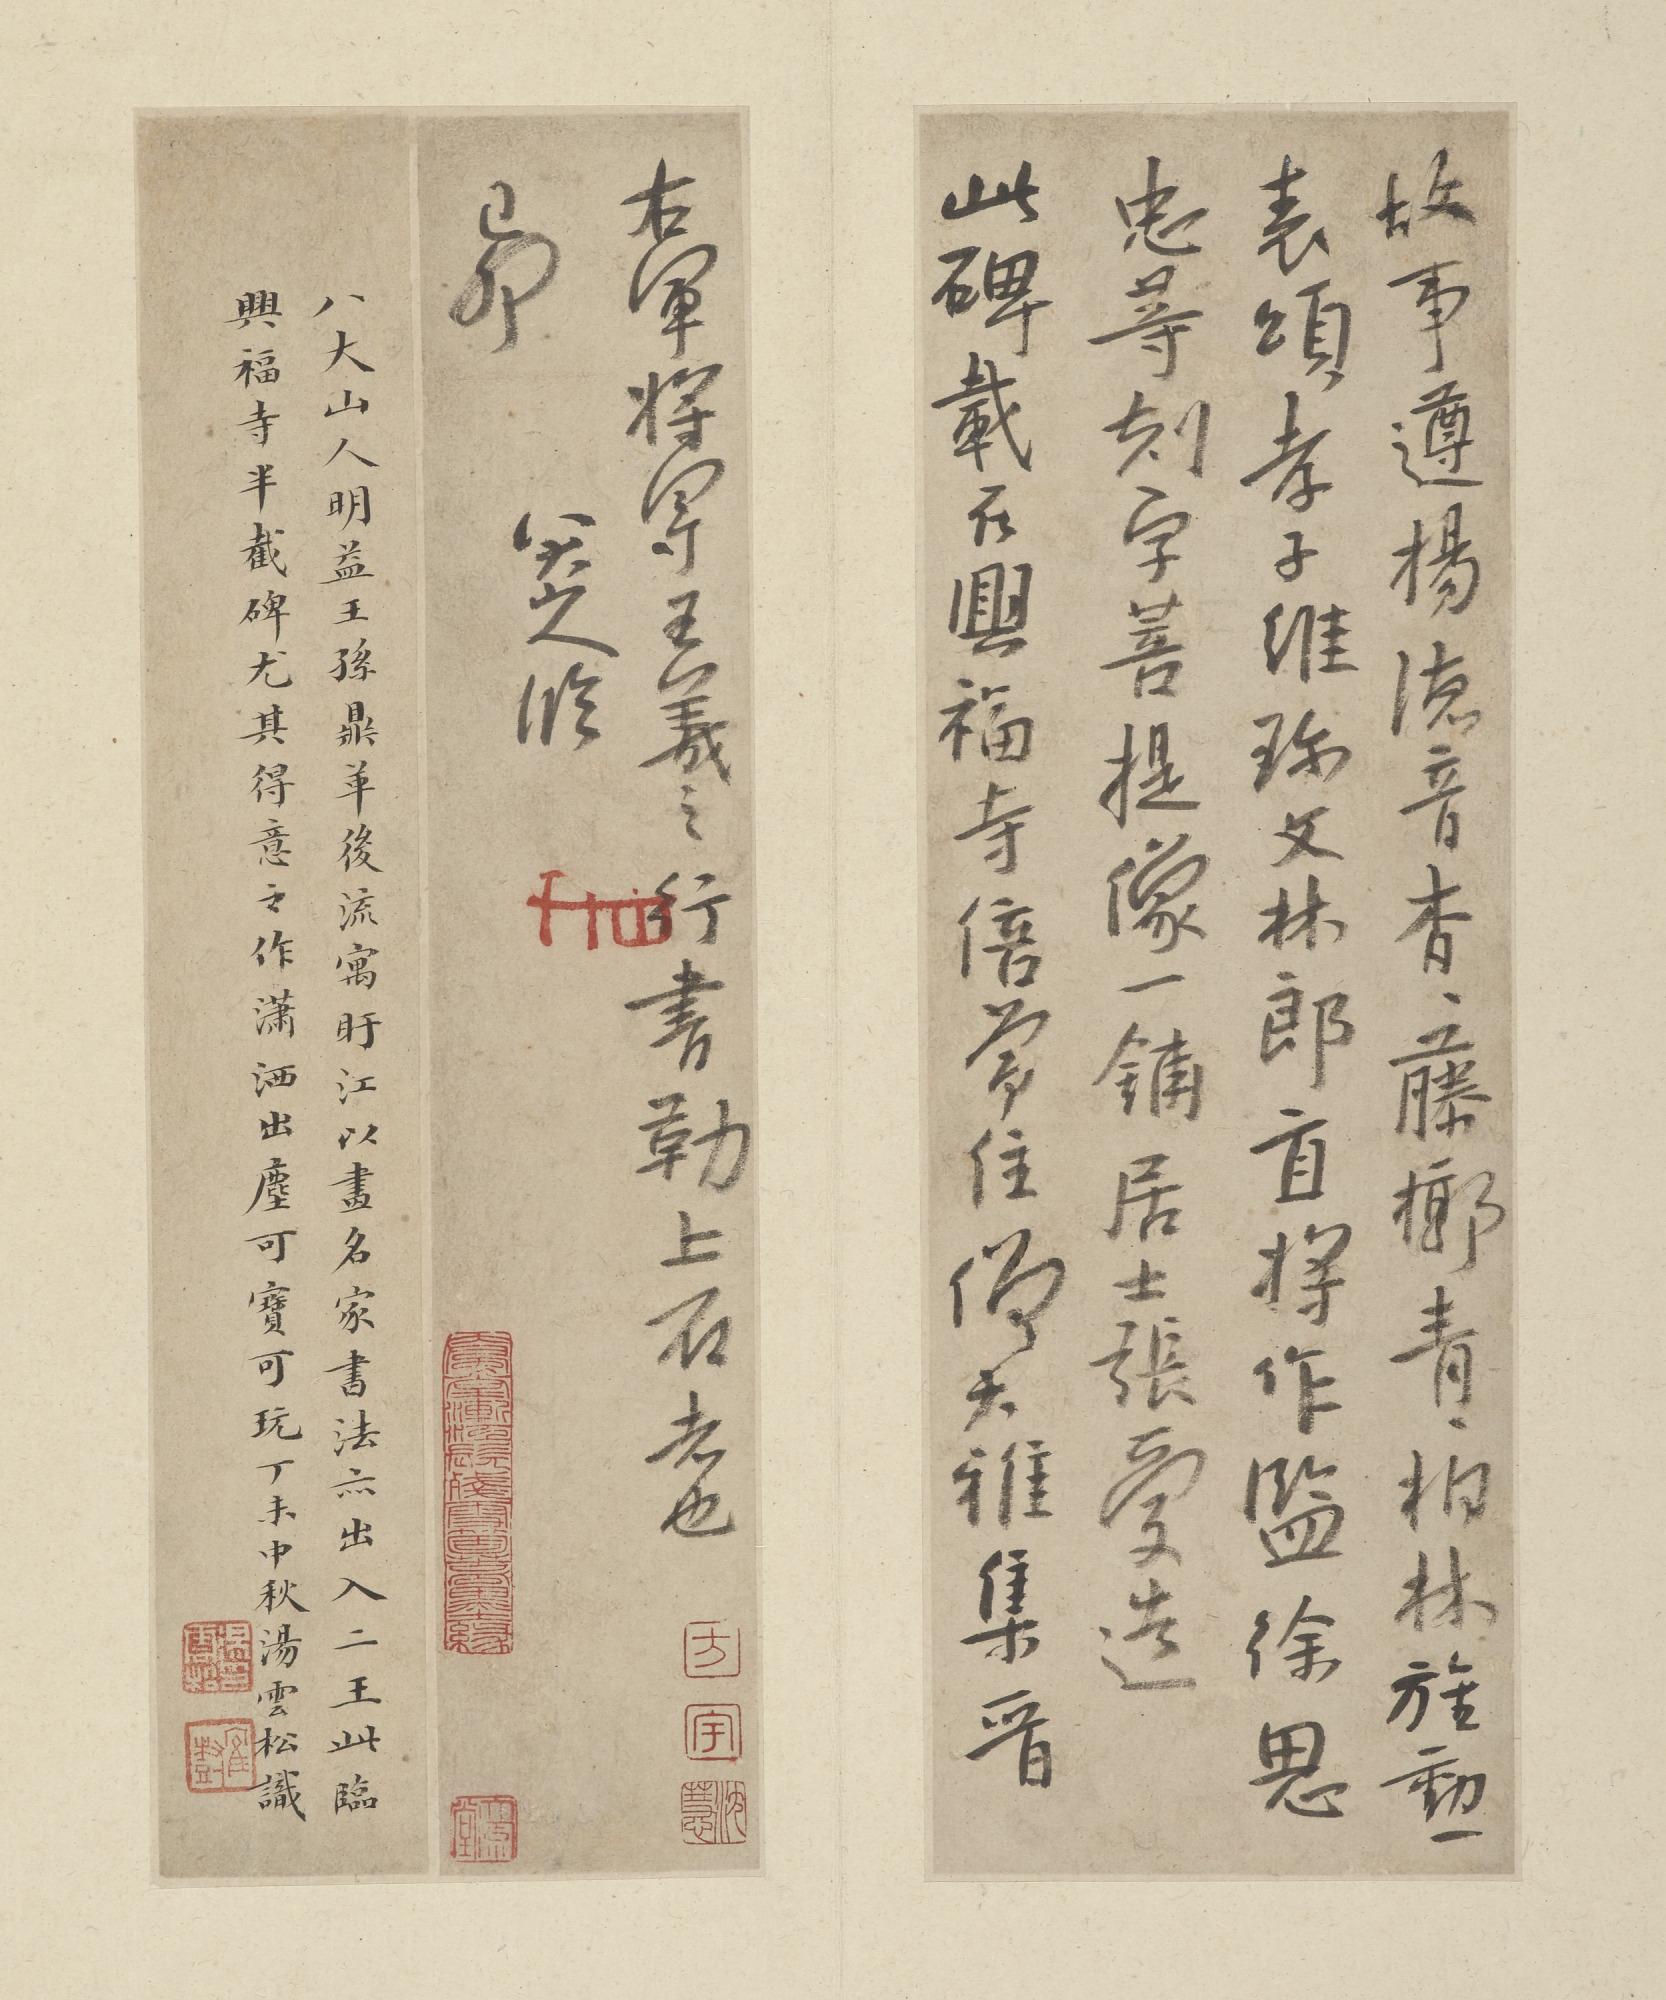 故事遵楊德音杳、藤槨青、柏林旌勳
表頌孝子維珎文林郎直將作監徐思
忠等刻字菩提像一鋪居士張愛造
此碑載在興福寺倍常住僧大雅集晉
右軍將軍王羲之行書勒上石者也
己卯
八大山人臨
八大山人明益王孫鼎革後流寓盱江以畫名家書法亦出入二王此臨
興福寺半截碑尤其得意之作瀟洒出塵可寶可玩丁未中秋湯雲松識
方
宇
沈
慧